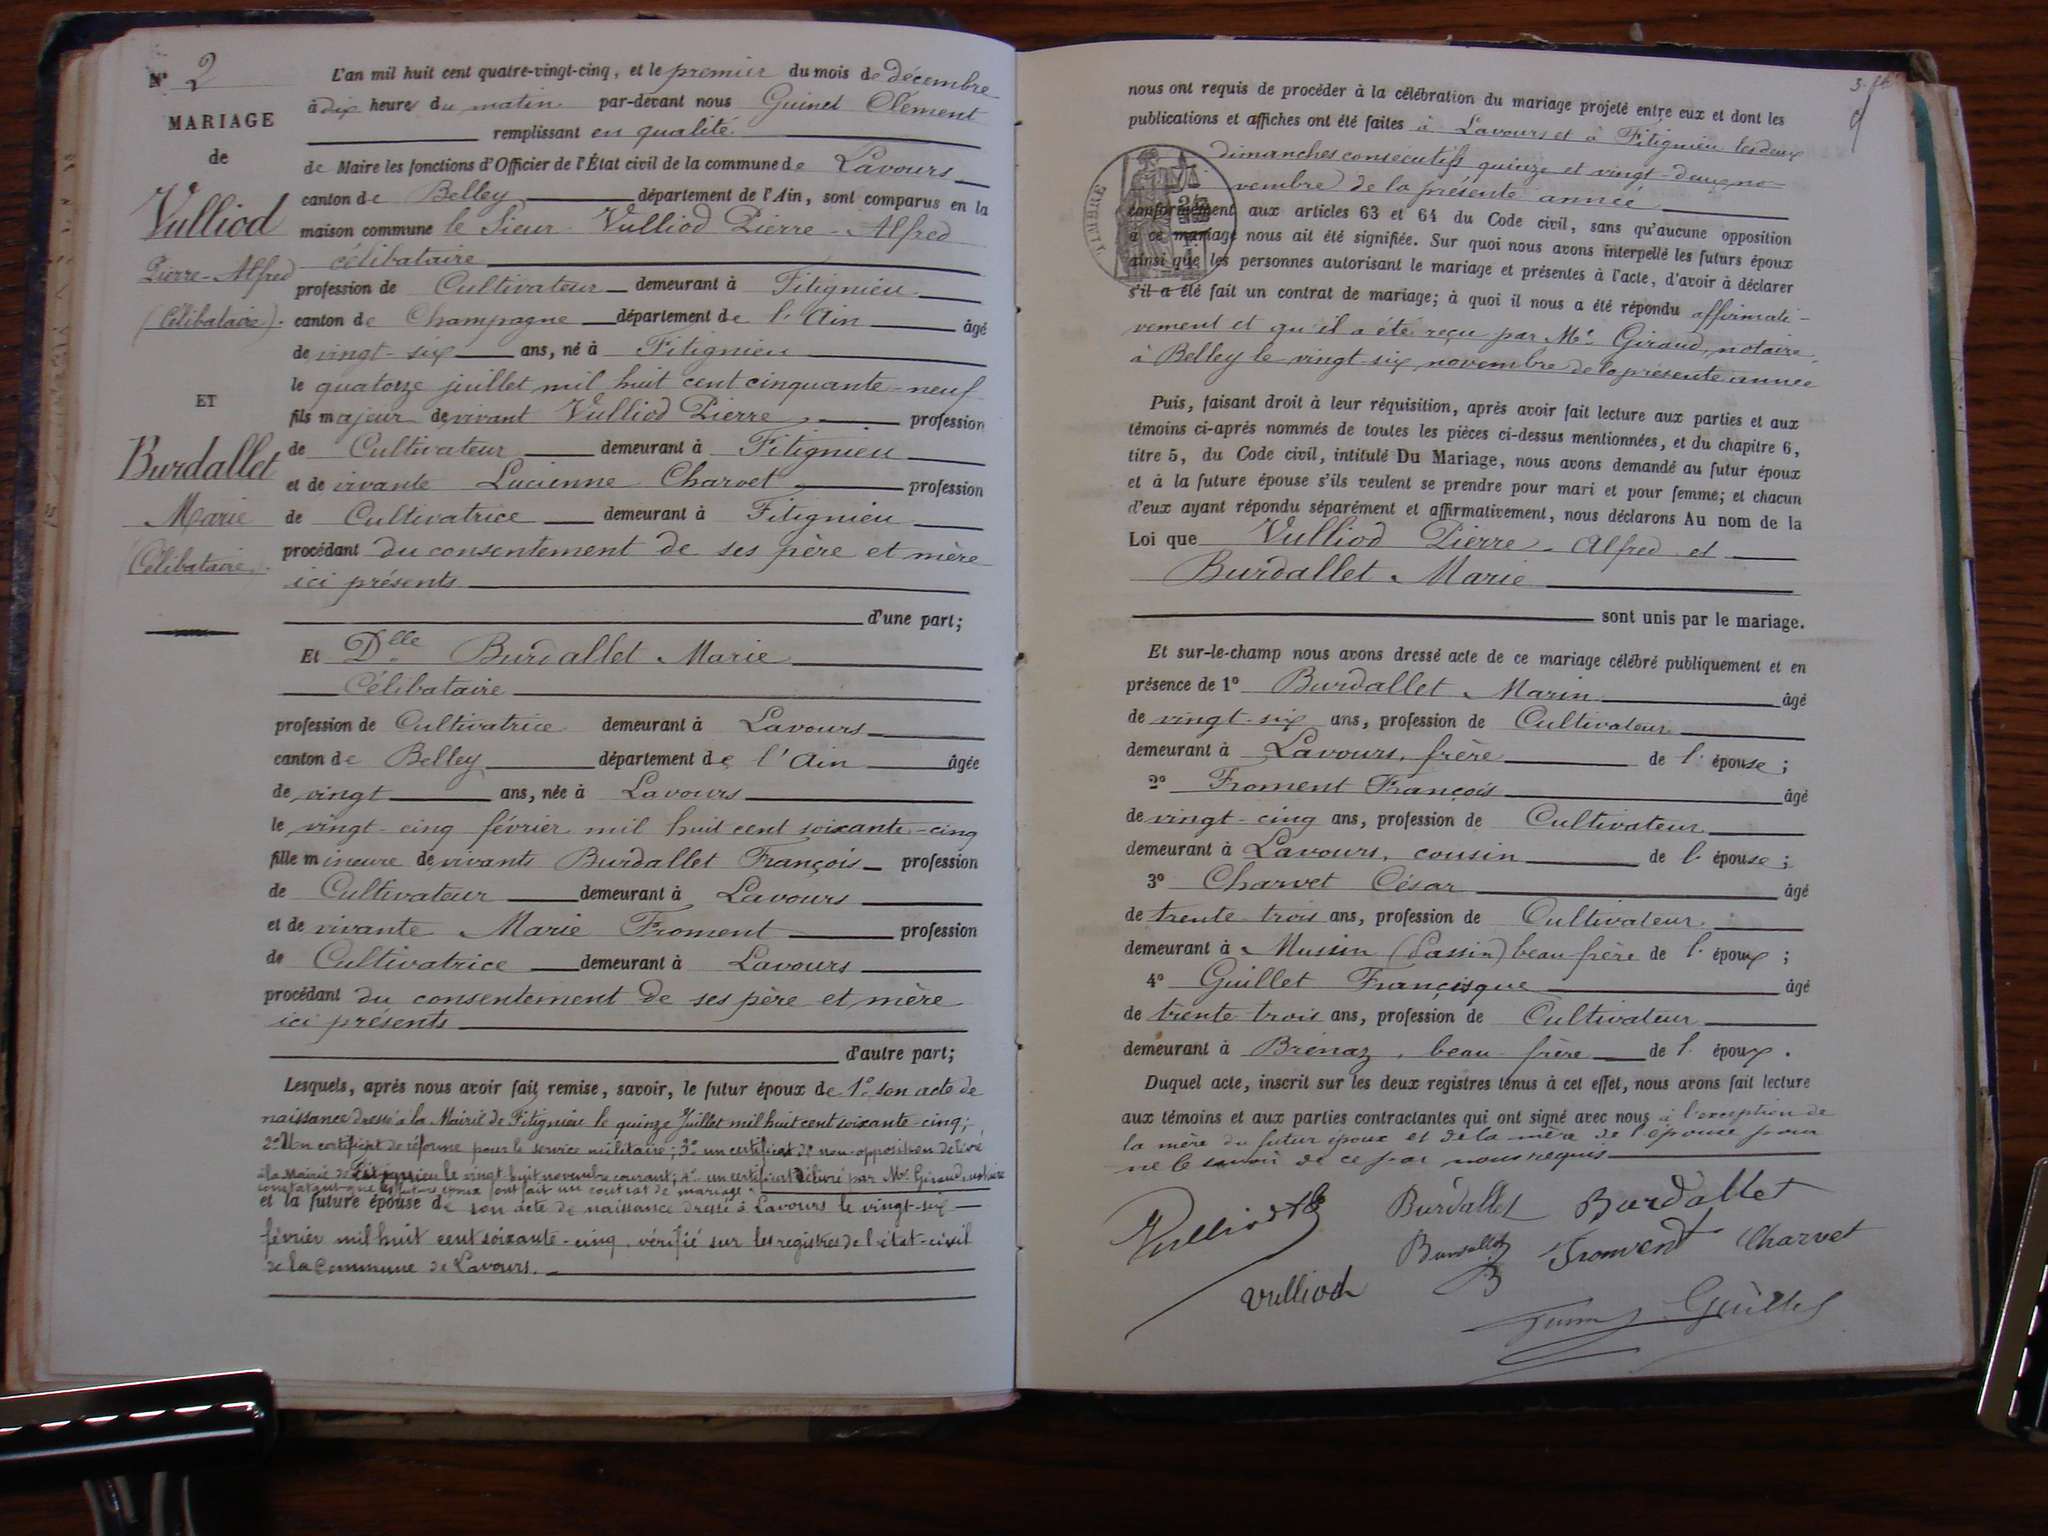 N° 2
MARIAGE
de
Vulliod
Pierre-Alfred
(Célibataire).
ET
Burdallet
Marie
(Célibataire).
L'an mil huit cent quatre-vingt-cinq, et le premier du mois de décembre
à dix heures du matin par-devant nous Guinet Clément
remplissant en qualité
de Maire les fonctions d'Officier de l'État civil de la commune de Lavours
canton de Belley département de l'Ain, sont comparus en la
maison commune le Sieur Vulliod Pierre-Alfred
célibataire
profession de Cultivateur demeurant à Fitignieu
canton de Champagne département de l'Ain âgé
de vingt-six ans, né à Fitignieu
le quatorze juillet mil huit cent cinquante-neuf
fils majeur de vivant Vulliod Pierre profession
de Cultivateur demeurant à Fitignieu
et de vivante Lucienne Charvet profession
de Cultivatrice demeurant à Fitignieu
procédant du consentement de ses père et mère
ici présents
d'une part;
Et Dlle Burdallet Marie
Célibataire
profession de Cultivatrice demeurant à Lavours
canton de Belley département de l'Ain âgée
de vingt ans, née à Lavours
le vingt-cinq février mil huit cent soixante-cinq
fille mineure de vivants Burdallet François profession
de Cultivateur demeurant à Lavours
et de vivante Marie Froment profession
de Cultivatrice demeurant à Lavours
procédant du consentement de ses père et mère
ici présents
d'autre part;
Lesquels, après nous avoir fait remise, savoir, le futur époux de 1° son acte de
naissance dressé à la Mairie de Fitignieu le quinze Juillet mil huit cent soixante-cinq;
2° Un certificat de réforme pour le service militaire; 3° un certificat de non-opposition délivré
à la Mairie de Fitignieu le vingt huit novembre courant; 4° un certificat délivré par Me Giraud, notaire
constatant que les futurs époux font fait un contrat de mariage
et la future épouse de son acte de naissance dressé à Lavours le vingt-six
février mil huit cent soixante-cinq, vérifié sur les registres de l'état-civil
de la Commune de Lavours.
nous ont requis de procéder à la célébration du mariage projeté entre eux et dont les
publications et affiches ont été faites à Lavours et à Fitignieu les deux
dimanches consécutifs quinze et vingt-deux no-
vembre de la présente année
TIMBRE
conformément aux articles 63 et 64 du Code civil, sans qu'aucune opposition
à ce mariage nous ait été signifiée. Sur quoi nous avons interpellé les futurs époux
ainsi que les personnes autorisant le mariage et présentes à l'acte, d'avoir à déclarer
s'il a été fait un contrat de mariage; à quoi il nous a été répondu affirmati-
vement et qu'il a été reçu par Me Giraud, notaire
à Belley le vingt-six novembre de la présente année
Puis, faisant droit à leur réquisition, après avoir fait lecture aux parties et aux
témoins ci-après nommés de toutes les pièces ci-dessus mentionnées, et du chapitre 6,
titre 5, du Code civil, intitulé Du Mariage, nous avons demandé au futur époux
et à la future épouse s'ils veulent se prendre pour mari et pour femme; et chacun
d'eux ayant répondu séparément et affirmativement, nous déclarons Au nom de la
Loi que Vulliod Pierre-Alfred et
Burdallet Marie
sont unis par le mariage.
Et sur-le-champ nous avons dressé acte de ce mariage célébré publiquement et en
présence de 1° Burdallet Marin âgé
de vingt-six ans, profession de Cultivateur
demeurant à Lavours, frère de l'épouse;
2° Froment François âgé
de vingt-cinq ans, profession de Cultivateur
demeurant à Lavours, cousin de l'épouse;
3° Charvet César âgé
de trente-trois ans, profession de Cultivateur
demeurant à Mussin (Passin) beau frère de l'époux;
4° Guillet Françisque âgé
de trente-trois ans, profession de Cultivateur
demeurant à Brénaz, beau-frère de l'époux.
Duquel acte, inscrit sur les deux registres tenus à cet effet, nous avons fait lecture
aux témoins et aux parties contractantes qui ont signé avec nous à l'exception de
la mère du futur époux et de la mère de l'épouse pour
ne le savoir de ce par nous requis
Vulliod Burdallet Burdallet
Burdallet Froment Charvet
B
Vulliod
Guillet